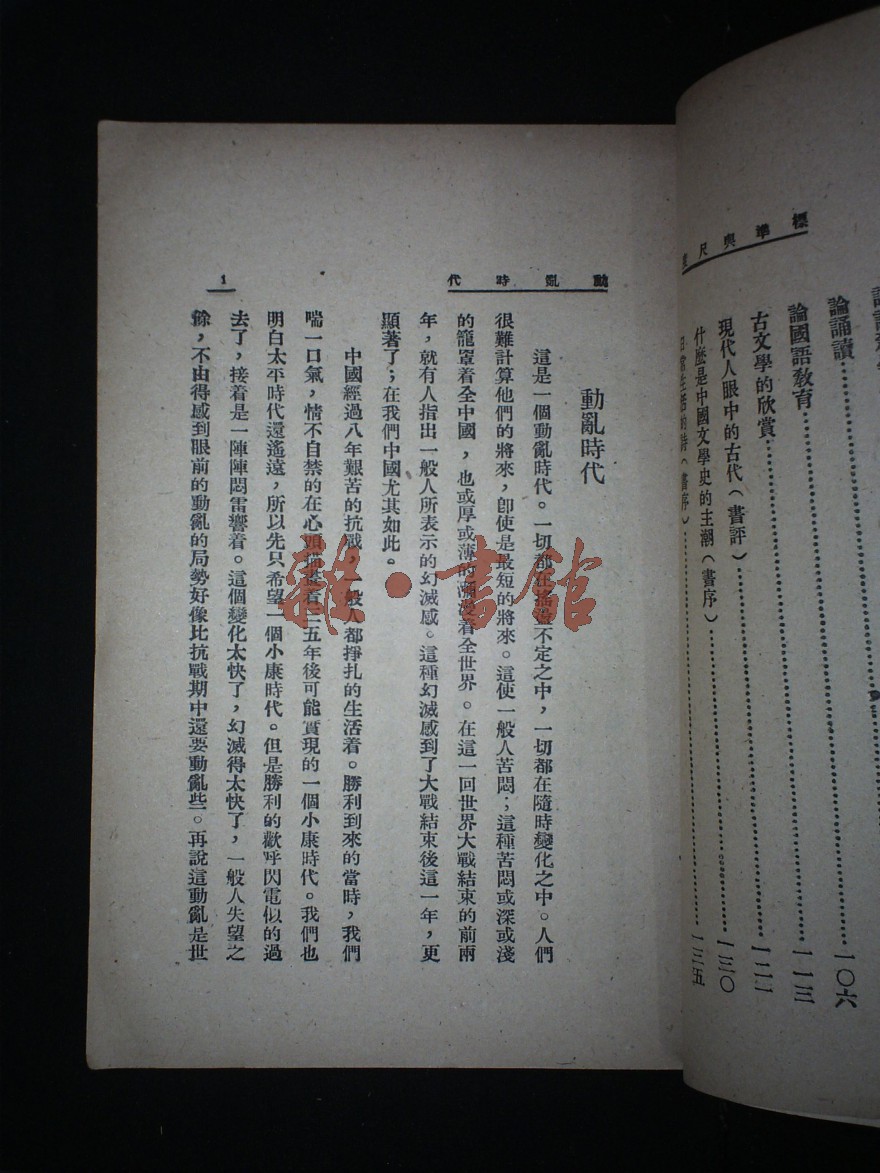 標準與尺度
論誦讀⋯⋯一〇六
論國語教育⋯⋯一一三
古文學的欣賞⋯⋯一二一
現代人眼中的古代(書評)⋯⋯一三〇
什麼是中國文學史的主潮(書序)⋯⋯一三五
日常生活的詩(書序)
動亂時代
1
動亂時代
這是一個動亂時代。一切都在搖盪不定之中,一切都在隨時變化之中。人們
很難計算他們的將來,卽使是最短的將來。這使一般人苦悶;這種苦悶或深或淺
的籠罩着全中國,也或厚或薄的瀰漫着全世界。在這一回世界大戰結束的前兩
年,就有人指出一般人所表示的幻滅感。這種幻滅感到了大戰結束後這一年,更
顯著了;在我們中國尤其如此。
中國經過八年艱苦的抗戰,一般人都掙扎的生活着。勝利到來的當時,我們
喘一口氣,情不自禁的在心頭描畫着三五年後可能實現的一個小康時代。我們也
明白太平時代還遙遠,所以先只希望一個小康時代。但是勝利的歡呼閃電似的過
去了,接着是一陣陣悶雷響着。這個變化太快了,幻滅得太快了,一般人失望之
餘,不由得感到眼前的動亂的局勢好像比抗戰期中還要動亂些。再說這動亂是世
雜·書館